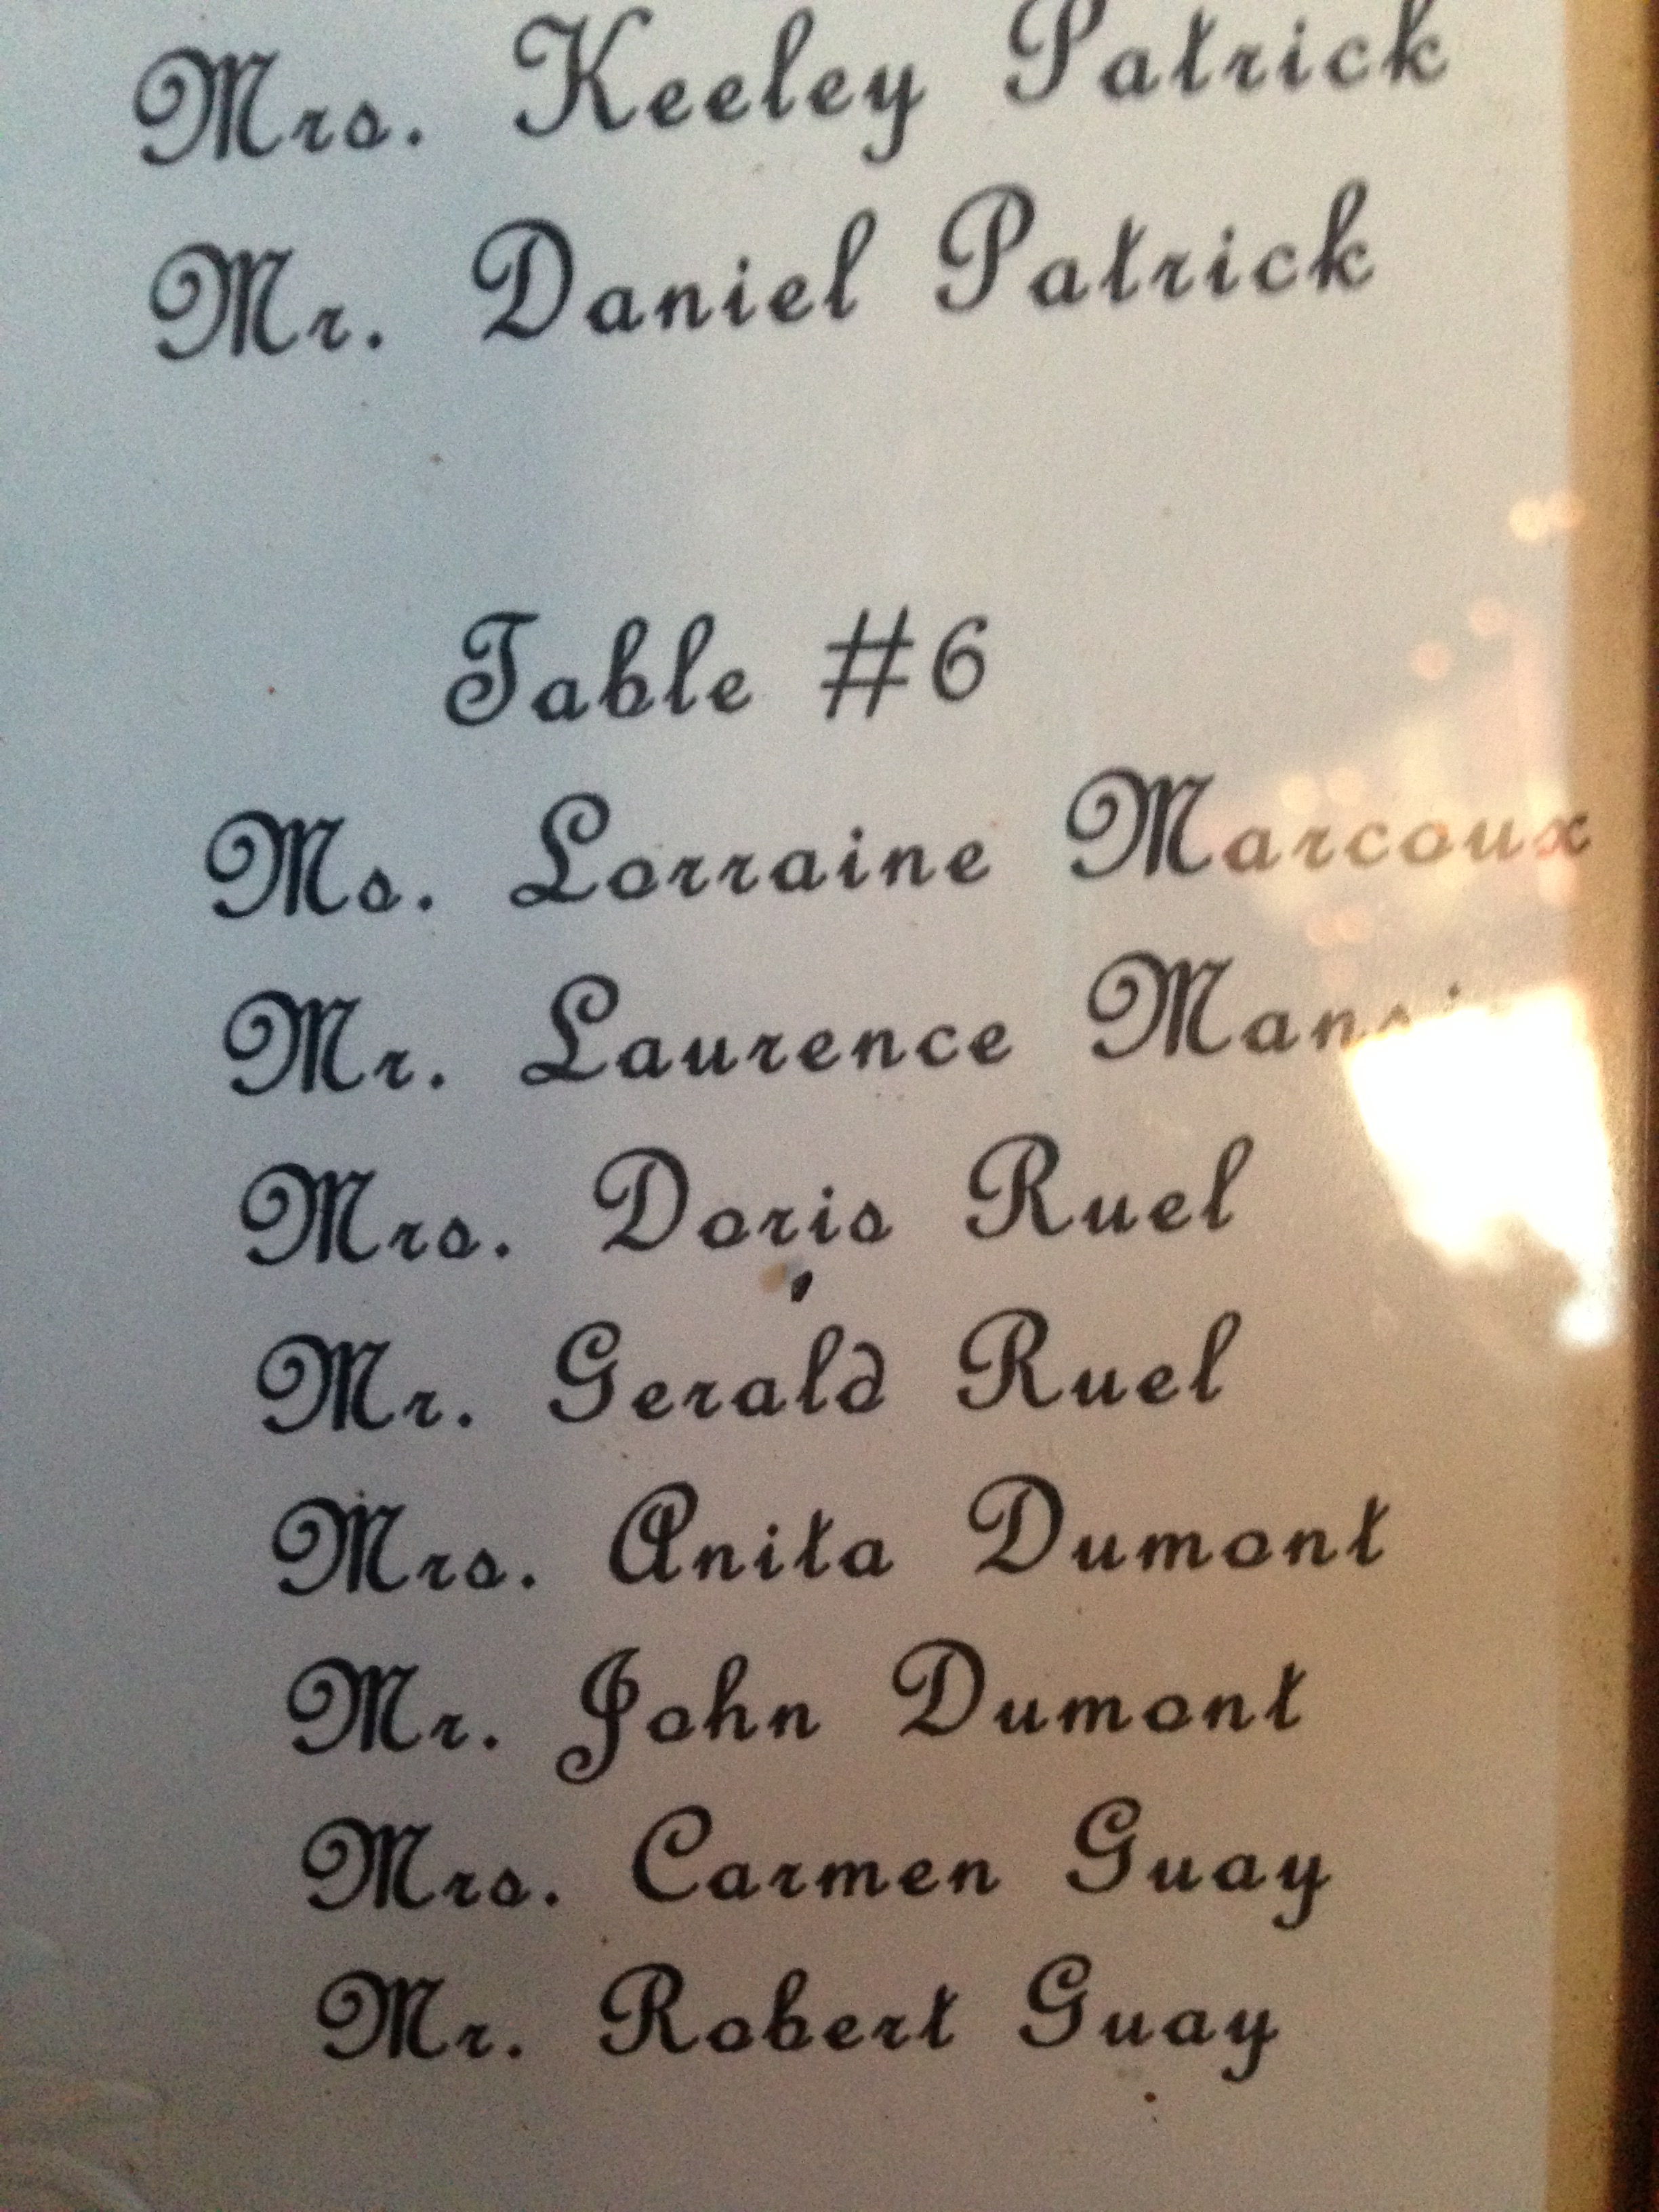 Mrs. Keeley Patrick
Mr. Daniel Patrick
Table #6
Ms. Lorraine Marcoux
Mr. Laurence
Mrs. Doris Ruel
Mr. Gerald Ruel
Mrs. Anita Dumont
Mr. John Dumont
Mrs. Carmen Guay
Mr. Robert Guay